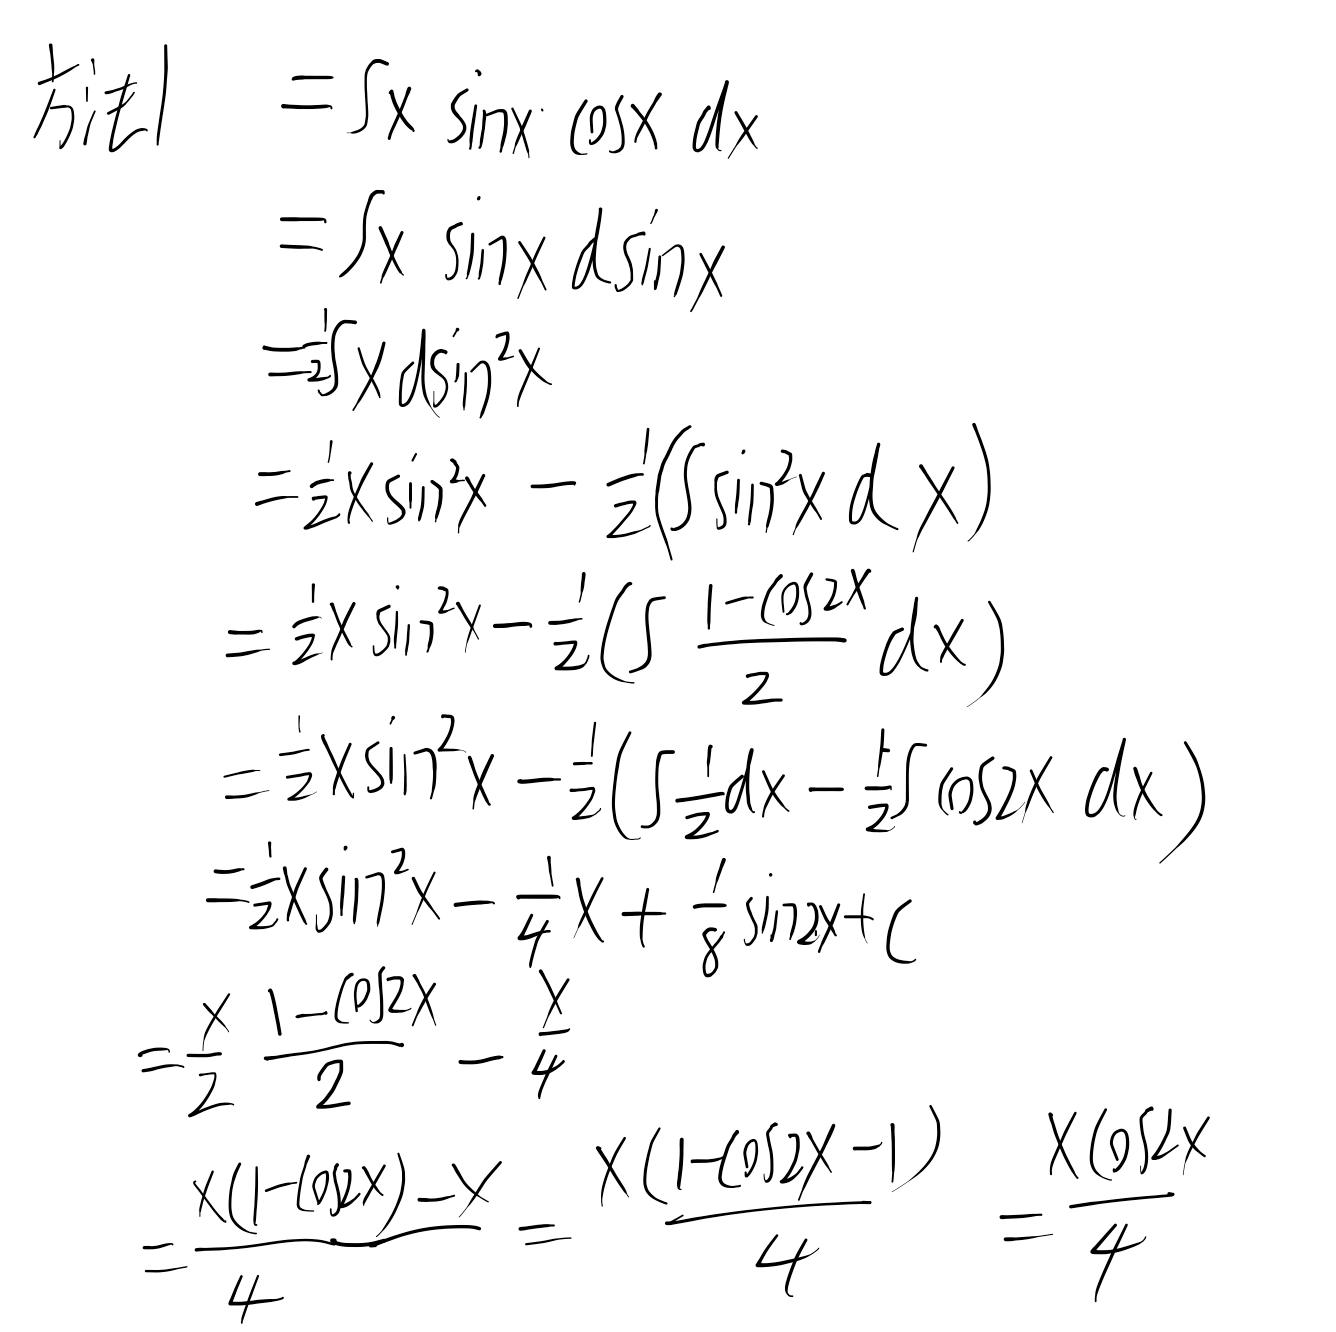 方法1 = ∫x sinx cosx dx
= ∫x sinx dsinx
= 1/2 ∫x dsin²x
= 1/2 x sin²x - 1/2 (∫sin²x dx)
= 1/2 x sin²x - 1/2 (∫ (1-cos2x)/2 dx)
= 1/2 x sin²x - 1/2 (∫ 1/2 dx - 1/2 ∫ cos2x dx)
= 1/2 x sin²x - 1/4 x + 1/8 sin2x + C
= x/2 (1-cos2x)/2 - x/4
= (x(1-cos2x)-x)/4 = x(1-cos2x-1)/4 = xcos2x/4